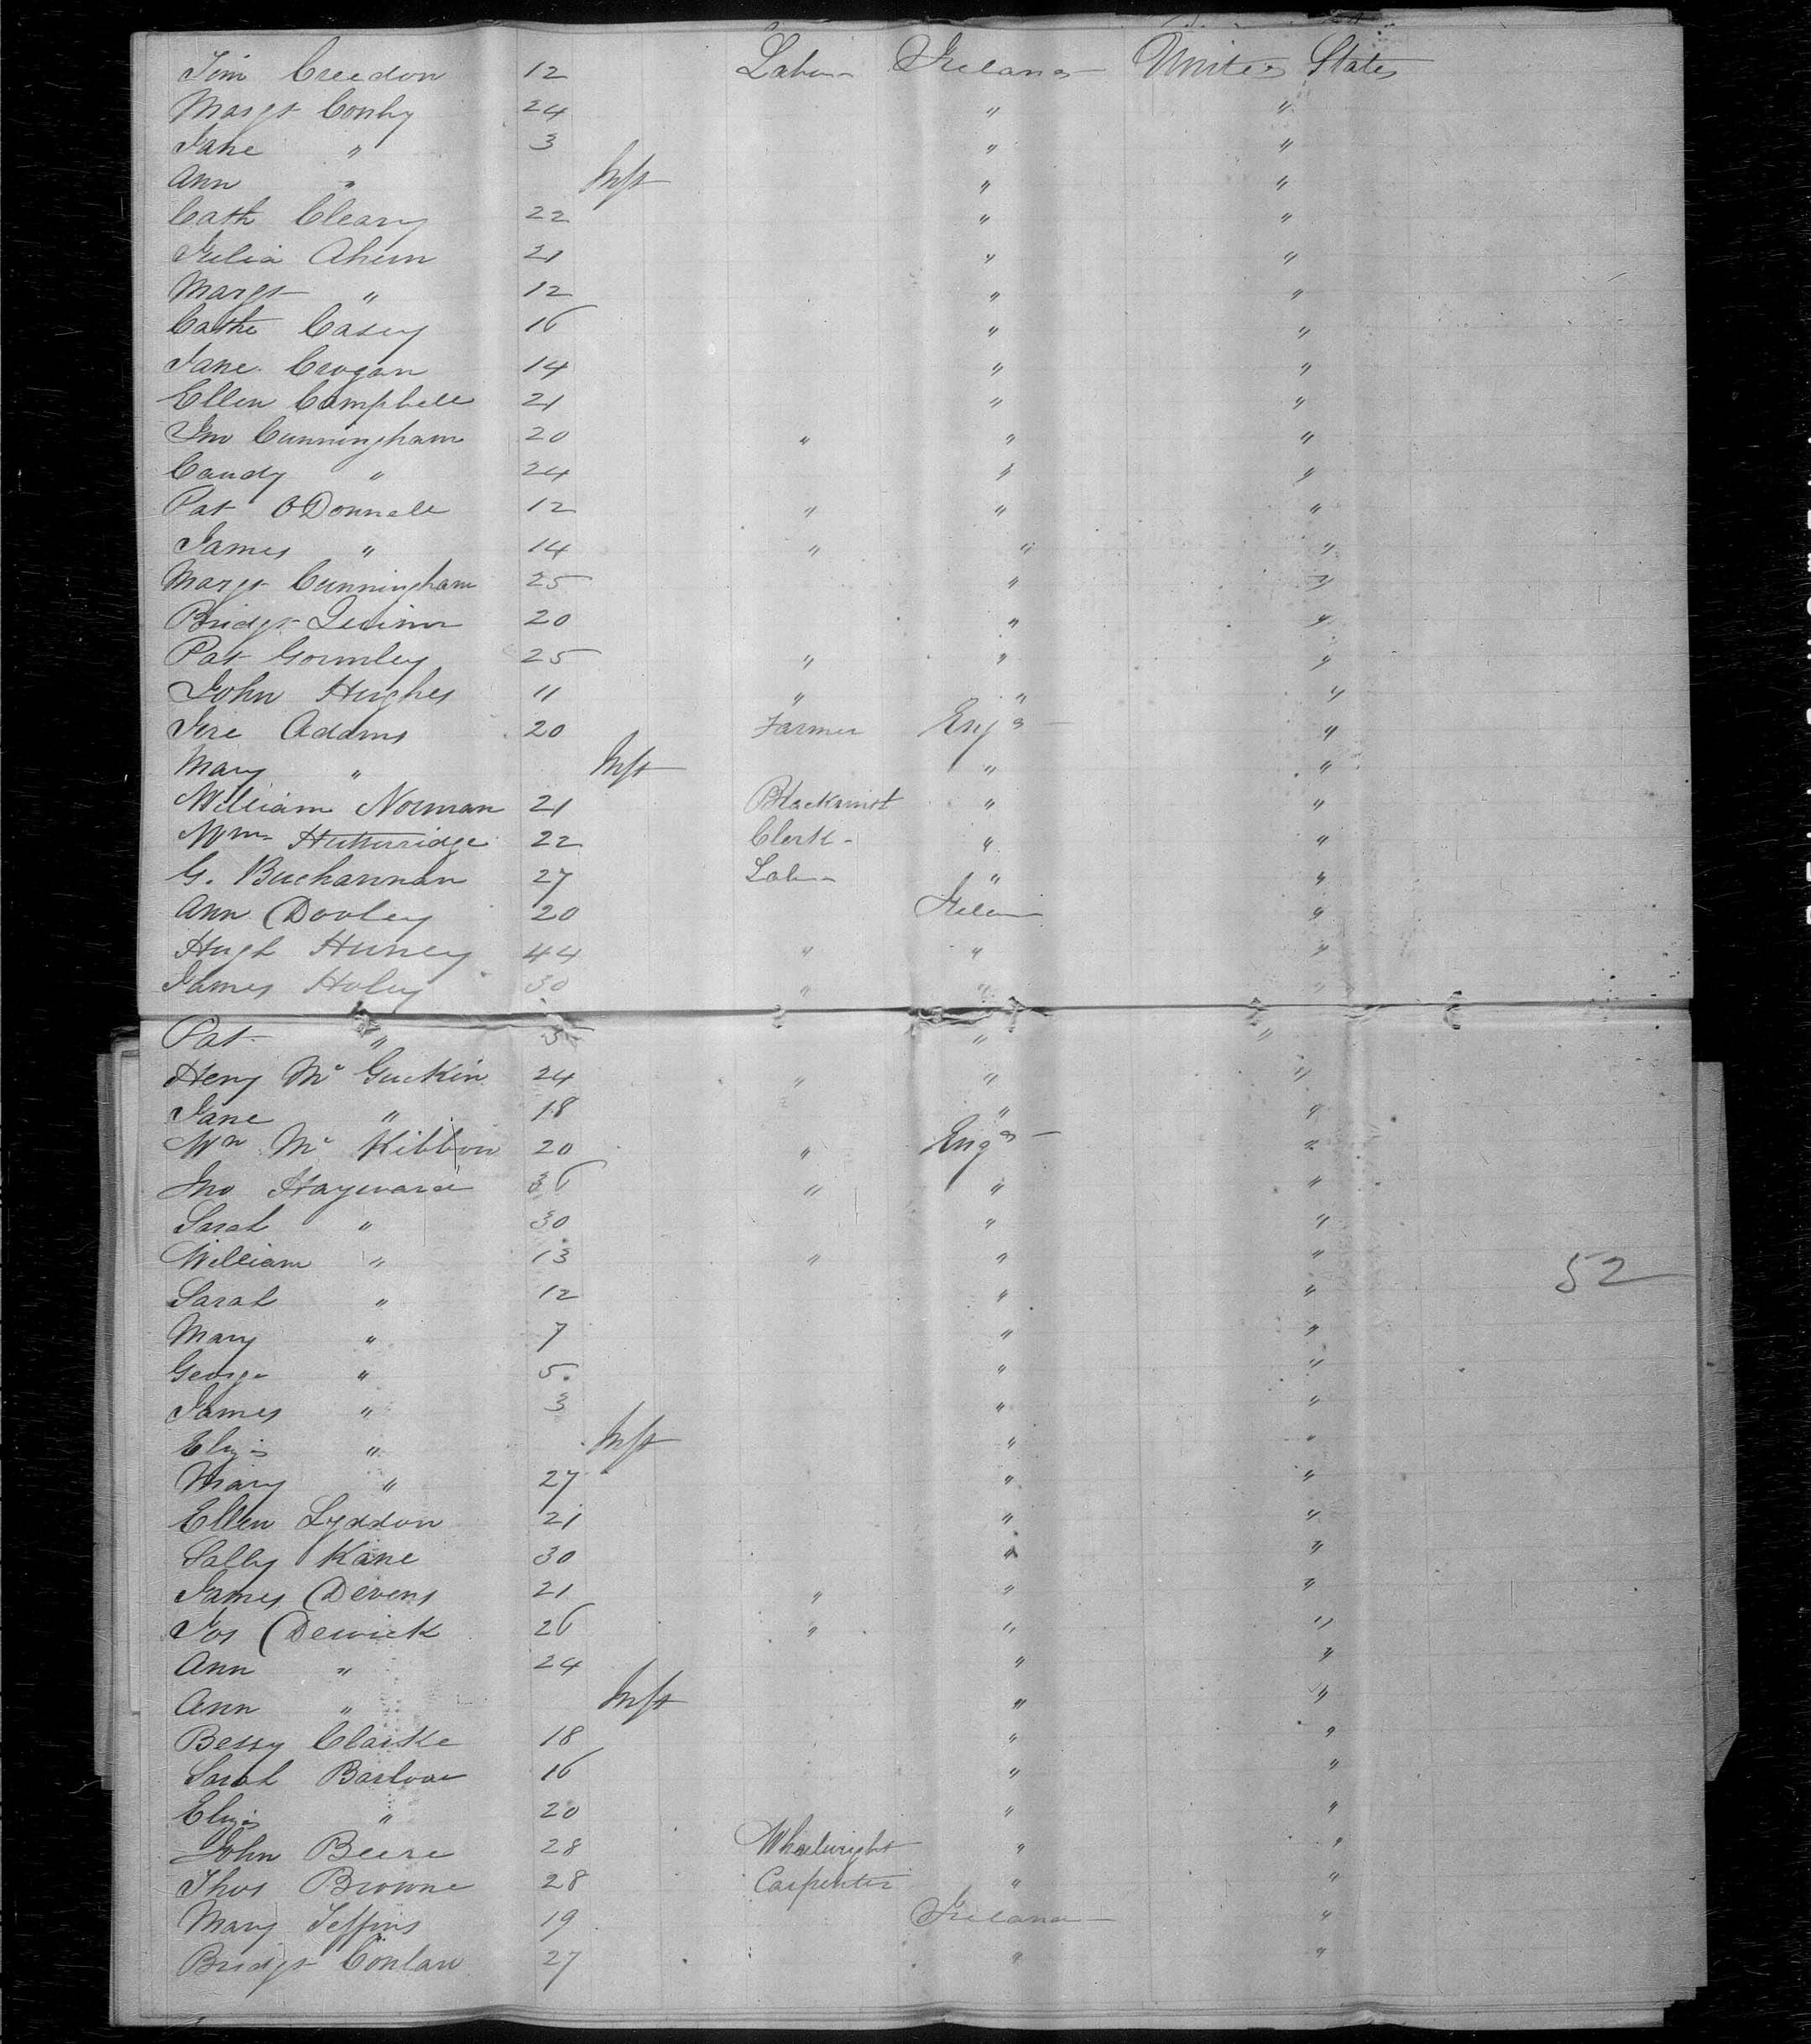 Tim Creedon 12 Labr Ireland United States
Margt Conhy 24 " "
Jane " 3 " "
Ann " Inft " "
Cath Cleary 22 " "
Julia Ahern 21 " "
Margt " 12 " "
Cathe Casey 16 " "
Jane Crogan 14 " "
Ellen Campbell 21 " "
Jno Cunningham 20 " " "
Candy " 24 " "
Pat O'Donnell 12 " " "
James " 14 " " "
Margt Cunningham 25 " "
Bridgt Quinn 20 " "
Pat Gormley 25 " " "
John Hughes 11 " " "
Jere Adams 20 Farmer Engd "
Mary " Inft " "
William Norman 21 Blacksmit " "
Wm Hutterridge 22 Clerk " "
G. Buchannan 27 Labr " "
Ann Dooley 20 Irelan "
Hugh Huney 44 " " "
James Holey 30 " " "
Pat " 5 " "
Heny Mc Guckin 24 " " "
Jane " 18 " "
Wm Mc Kibbon 20 " Engd "
Jno Hayward 36 " " "
Sarah " 30 " "
William " 13 " " "
Sarah " 12 " "
Mary " 7 " "
George " 5 " "
James " 3 " "
Eliza " Inft " "
Mary " 27 " "
Ellen Lyddon 21 " "
Sally Kane 30 " "
James Devens 21 " " "
Jos Dewick 26 " " "
Ann " 24 " "
Ann " Inft " "
Bessy Clarke 18 " "
Sarah Barlow 16 " "
Eliza " 20 " "
John Beere 28 Wheelwright " "
Thos Browne 28 Carpenter " "
Mary Jeffins 19 Ireland "
Bridgt Conlan 27 " "
52